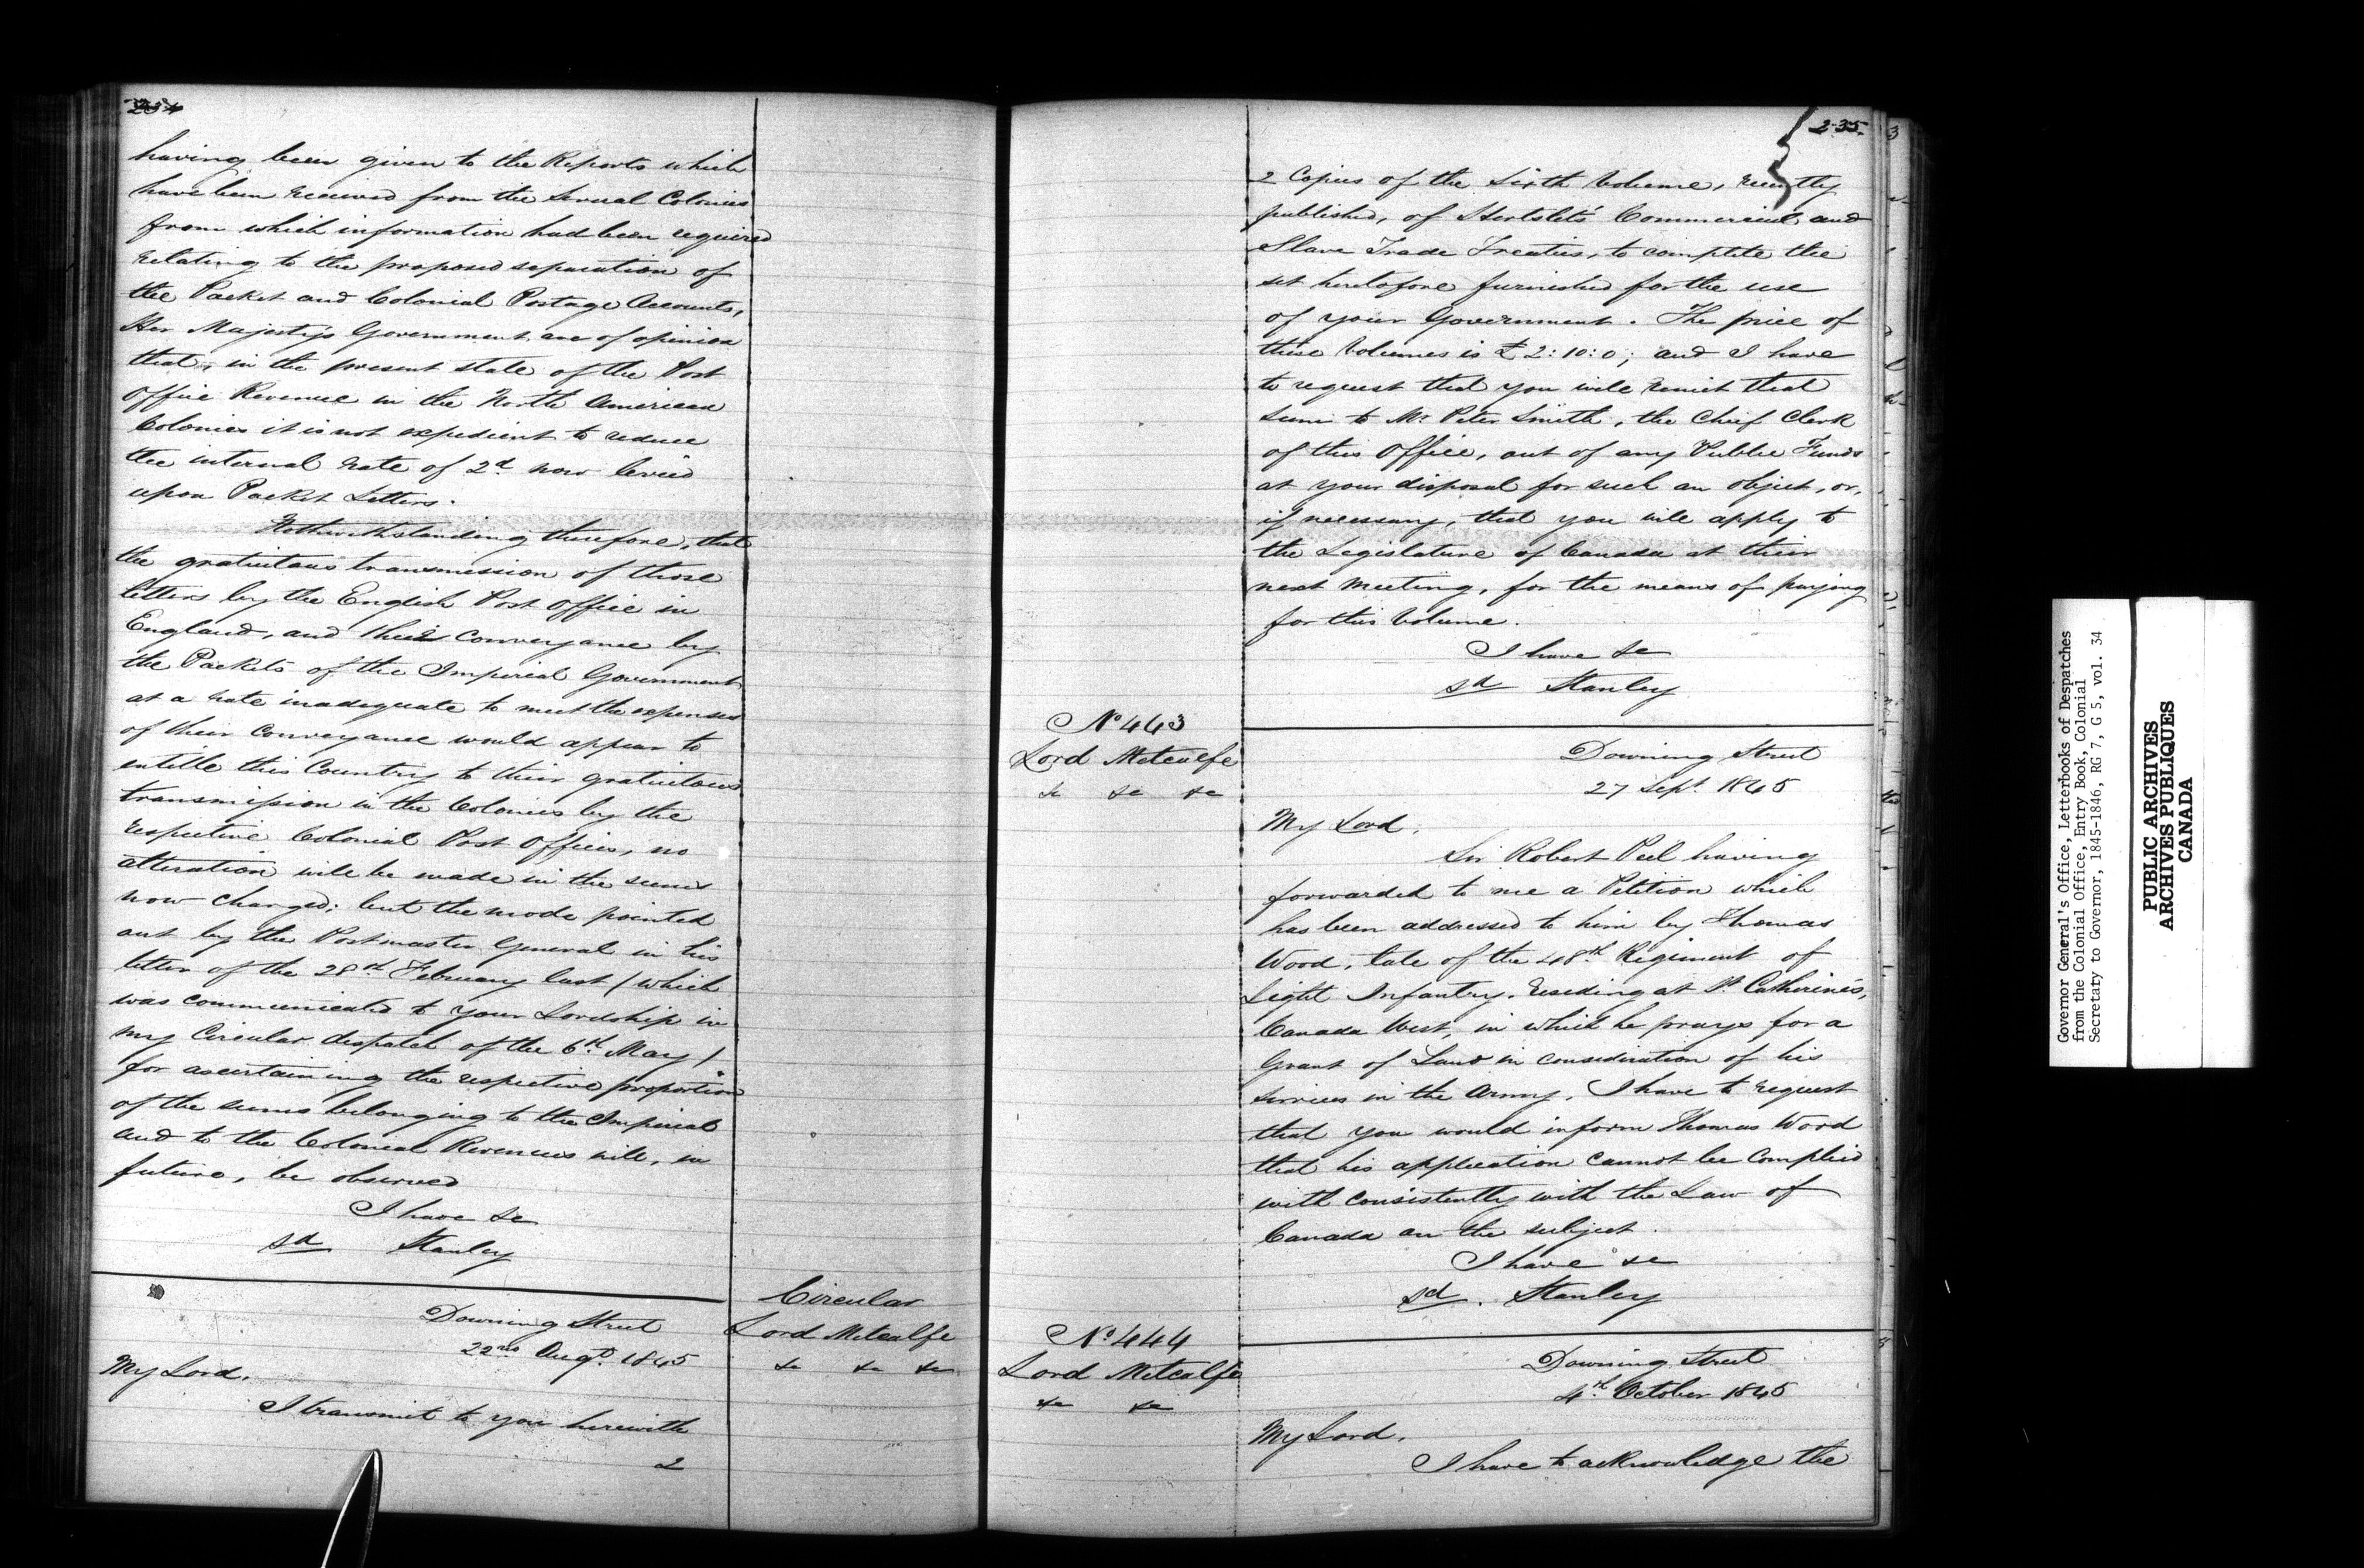 234
having been given to the Reports which
have been received from the several Colonies
from which information had been required
relating to the proposed separation of
the Packet and Colonial Postage Accounts,
Her Majesty's Government are of opinion
that, in the present state of the Post
Office Revenue in the North American
Colonies it is not expedient to reduce
the internal rate of 2d now levied
upon Packet Letters.
Nothwithstanding therefore, that
the gratuitous transmission of those
letters by the English Post Office in
England, and their conveyance by
the Packets of the Imperial Government
at a rate inadequate to meet the expenses
of their conveyance would appear to
entitle this Country to their gratuitous
transmission in the Colonies by the
respective Colonial Post Offices, no
alteration will be made in the sums
now charged; but the mode pointed
out by the Postmaster General in his
letter of the 28th February last (which
was communicated to your Lordship in
my Circular dispatch of the 6th May)
for ascertaining the respective proportion
of the sums belonging to the Imperial
and to the Colonial Revenues will, in
future, be observed
I have &c
sd Stanley
Circular
Lord Metcalfe
&c &c &c
Downing Street
22nd Augt. 1845
My Lord,
I transmit to you herewith
2
235.
2 Copies of the Sixth Volume, recently
published, of Hertslet's Commercial and
Slave Trade Treaties, to complete the
set heretofore furnished for the use
of your Government. The price of
these Volumes is £2:10:0; and I have
to request that you will remit that
sum to Mr Peter Smith, the Chief Clerk
of this Office, out of any Public Funds
at your disposal for such an object, or,
if necessary, that you will apply to
the Legislature of Canada at their
next meeting, for the means of paying
for this Volume.
I have &c
sd Stanley
No 443
Lord Metcalfe
&c &c &c
Downing Street
27 Sept. 1845
My Lord,
Sir Robert Peel having
forwarded to me a Petition which
has been addressed to him by Thomas
Wood, late of the 48th Regiment of
Light Infantry, residing at St Catherine's,
Canada West, in which he prays for a
Grant of Land in consideration of his
services in the Army, I have to request
that you would inform Thomas Wood
that his application cannot be complied
with consistently with the Law of
Canada on the subject.
I have &c
sd. Stanley
No. 444
Lord Metcalfe
&c &c
Downing Street
4th October 1845
My Lord,
I have to acknowledge the
Governor General's Office, Letterbooks of Despatches
from the Colonial Office, Entry Book, Colonial
Secretary to Governor, 1845-1846, RG 7, G 5, vol. 34
PUBLIC ARCHIVES
ARCHIVES PUBLIQUES
CANADA